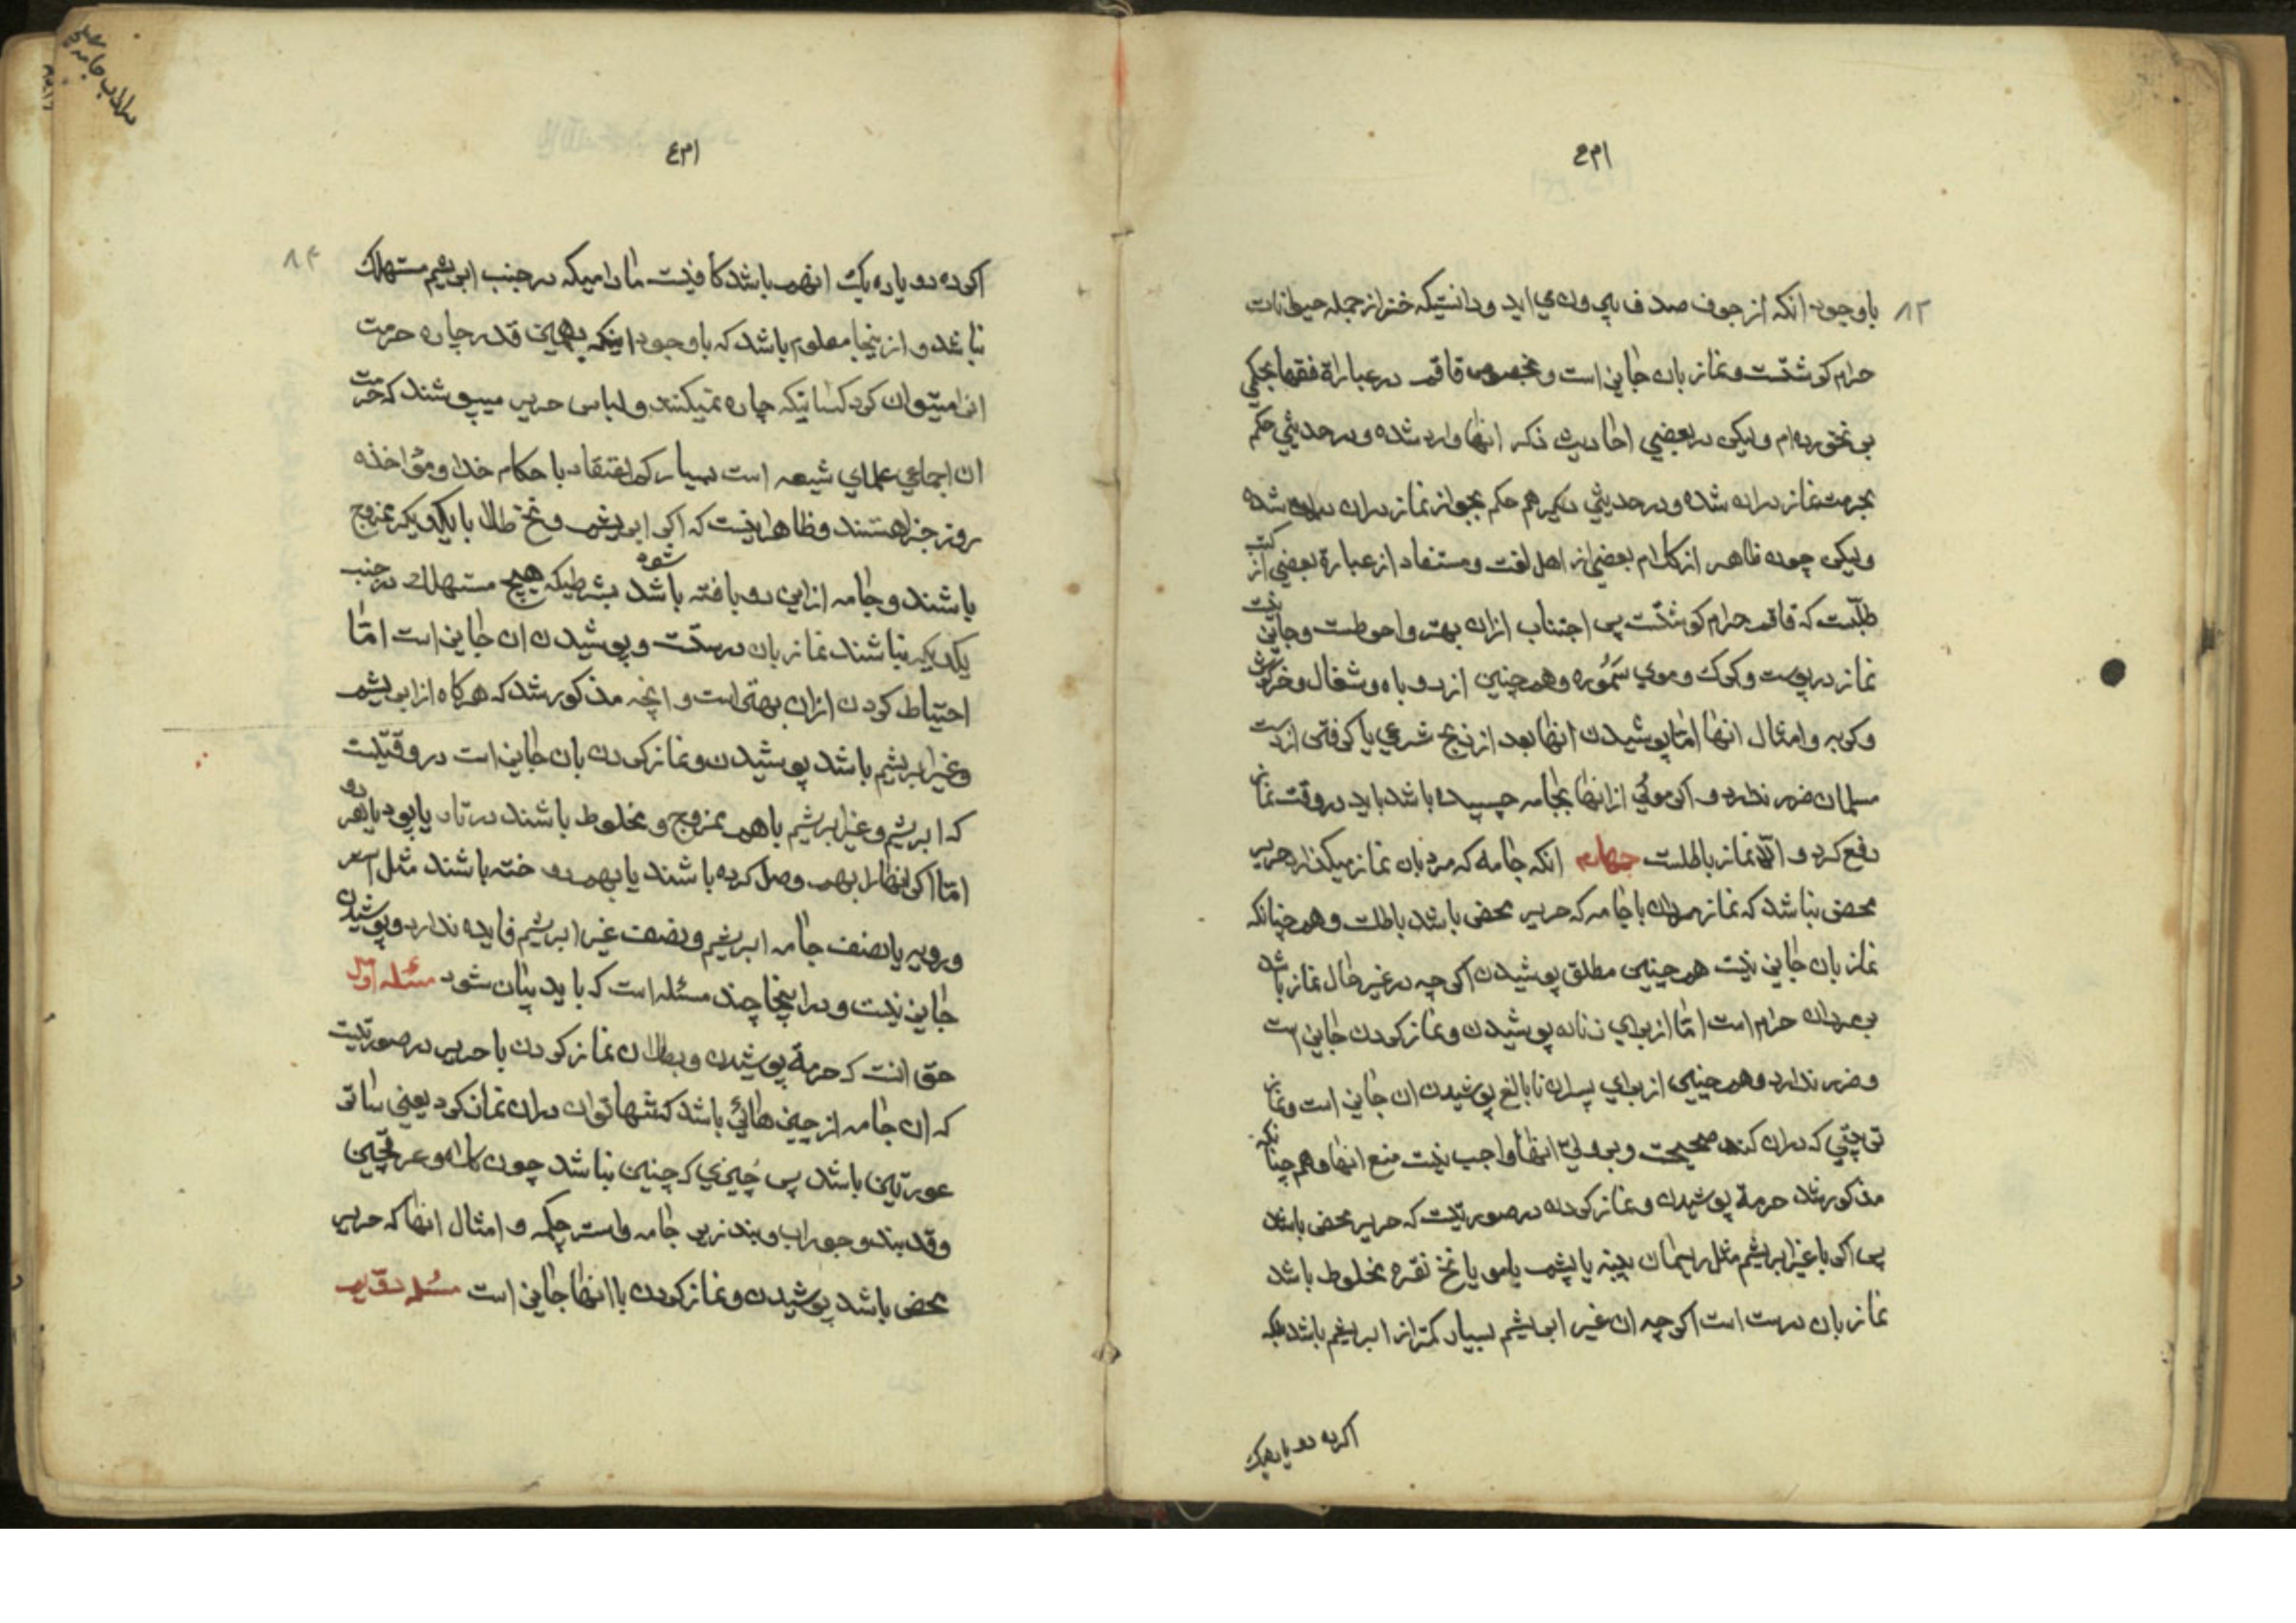 ۸۳
باوجود انکه از جوف صدف بیرون می اید و دانستیکه خز از جمله حیوانات
حرام کوشتست و نماز بان جایز است و بخصوص قاقم در عباراة فقها بحکمی
بر نخورده ام و لیکن در بعضی احادیث ذکر انها وارد شده و در حدیثی حکم
بحرمت نماز دران شده و در حدیثی دیگر هم حکم بجواز نماز دران شده
ولیکن چون ظاهر از کلام بعضی از اهل لغت و مستفاد از عبارة بعضی از کتب
طبّست که قاقم حرام کوشتست پس اجتناب ازان بهتر و احوطست و جایز نیست
نماز در پوست و کرک و موی سَمُوره و همچنین از روباه و شغال و خرگوش
و کربه و امثال انها امّا پوشیدن انها بعد از ذبح شرعی یا کرفتن از دست
مسلمان ضرر ندارد و اکر موئی از انها بجامه چسپیده باشد باید در وقت نماز
دفع کرد و الّا نماز باطلست چهارم انکه جامه که مرد بان نماز میکذارد حریر
محض نباشد که نماز مردان با جامه که حریر محض باشد باطلت و همچنانکه
نماز بان جایز نیست همچنین مطلق پوشیدن اکرچه در غیر حال نماز باشد
بر مردان حرام است امّا از برای زنان پوشیدن و نماز کردن جایز است
و ضرر ندارد و همچنین از برای پسران نابالغ پوشیدن ان جایز است و نماز
که دران کنند صحیحست و بر ولیّ انها واجب نیست منع انها و همچنانکه
مذکور شد حرمة پوشیدن و نماز کردن در صورتیست که حریر محض باشد
پس اکر با غیر ابریشم مثل ریسمان پنبه یا پشم یا مو یا نخ نقره مخلوط باشد
نماز بان درست است اکرچه ان غیر ابریشم بسیار کمتر از ابریشم باشد بلکه
اکر ده دو یا ده یک
۸۴
اکر ده دو یا ده یک انهم باشد کافیست مادامیکه در جنب ابریشم مستهلک
نباشد و از اینجا معلوم باشد که باوجود اینکه بهمین قدر چاره حرمت
انرا میتوان کرد کسانیکه چاره نمیکنند و لباس حریر میپوشند که حرمت
ان اجماعی علمای شیعه است بسیار کم اعتقاد باحکام خدا و مؤاخذه
روز جزا هستند و ظاهر اینست که اکر ابریشم و نخ طلا با یکدیکر ممزوج
باشند و جامه از این دو بافته باشد شود بشرطیکه هیچ مستهلک در جنب
یکدیکر نباشند نماز بان درستست و پوشیدن ان جایز است امّا
احتیاط کردن ازان بهتر است و انچه مذکور شد که هرکاه از ابریشم
و غیر ابریشم باشد پوشیدن و نماز کردن بان جایز است در وقتیست
که ابریشم و غیر ابریشم باهم ممزوج و مخلوط باشند در تار یا پود یا هر دو
امّا اکر انها را بهم وصل کرده باشند یا بهم دوخته باشند مثل استر
و رویه یا نصف جامه ابریشم و نصف غیر ابریشم فایده ندارد و پوشیدن
جایز نیست و در اینجا چند مسئله است که باید بیان شود مسئله اوّل
حق انست که حرمة پوشیدن و بطلان نماز کردن با حریر در صورتیست
که ان جامه از چیزهائی باشد که تنها توان دران نماز کرد یعنی ساتر
عورتین باشد پس چیزی که چنین نباشد چون کلاه و عرقچین
و قد بند و جوراب و بند زیر جامه و استر چکمه و امثال انها که حریر
محض باشد پوشیدن و نماز کردن با انها جایز است مسئله دوّیم